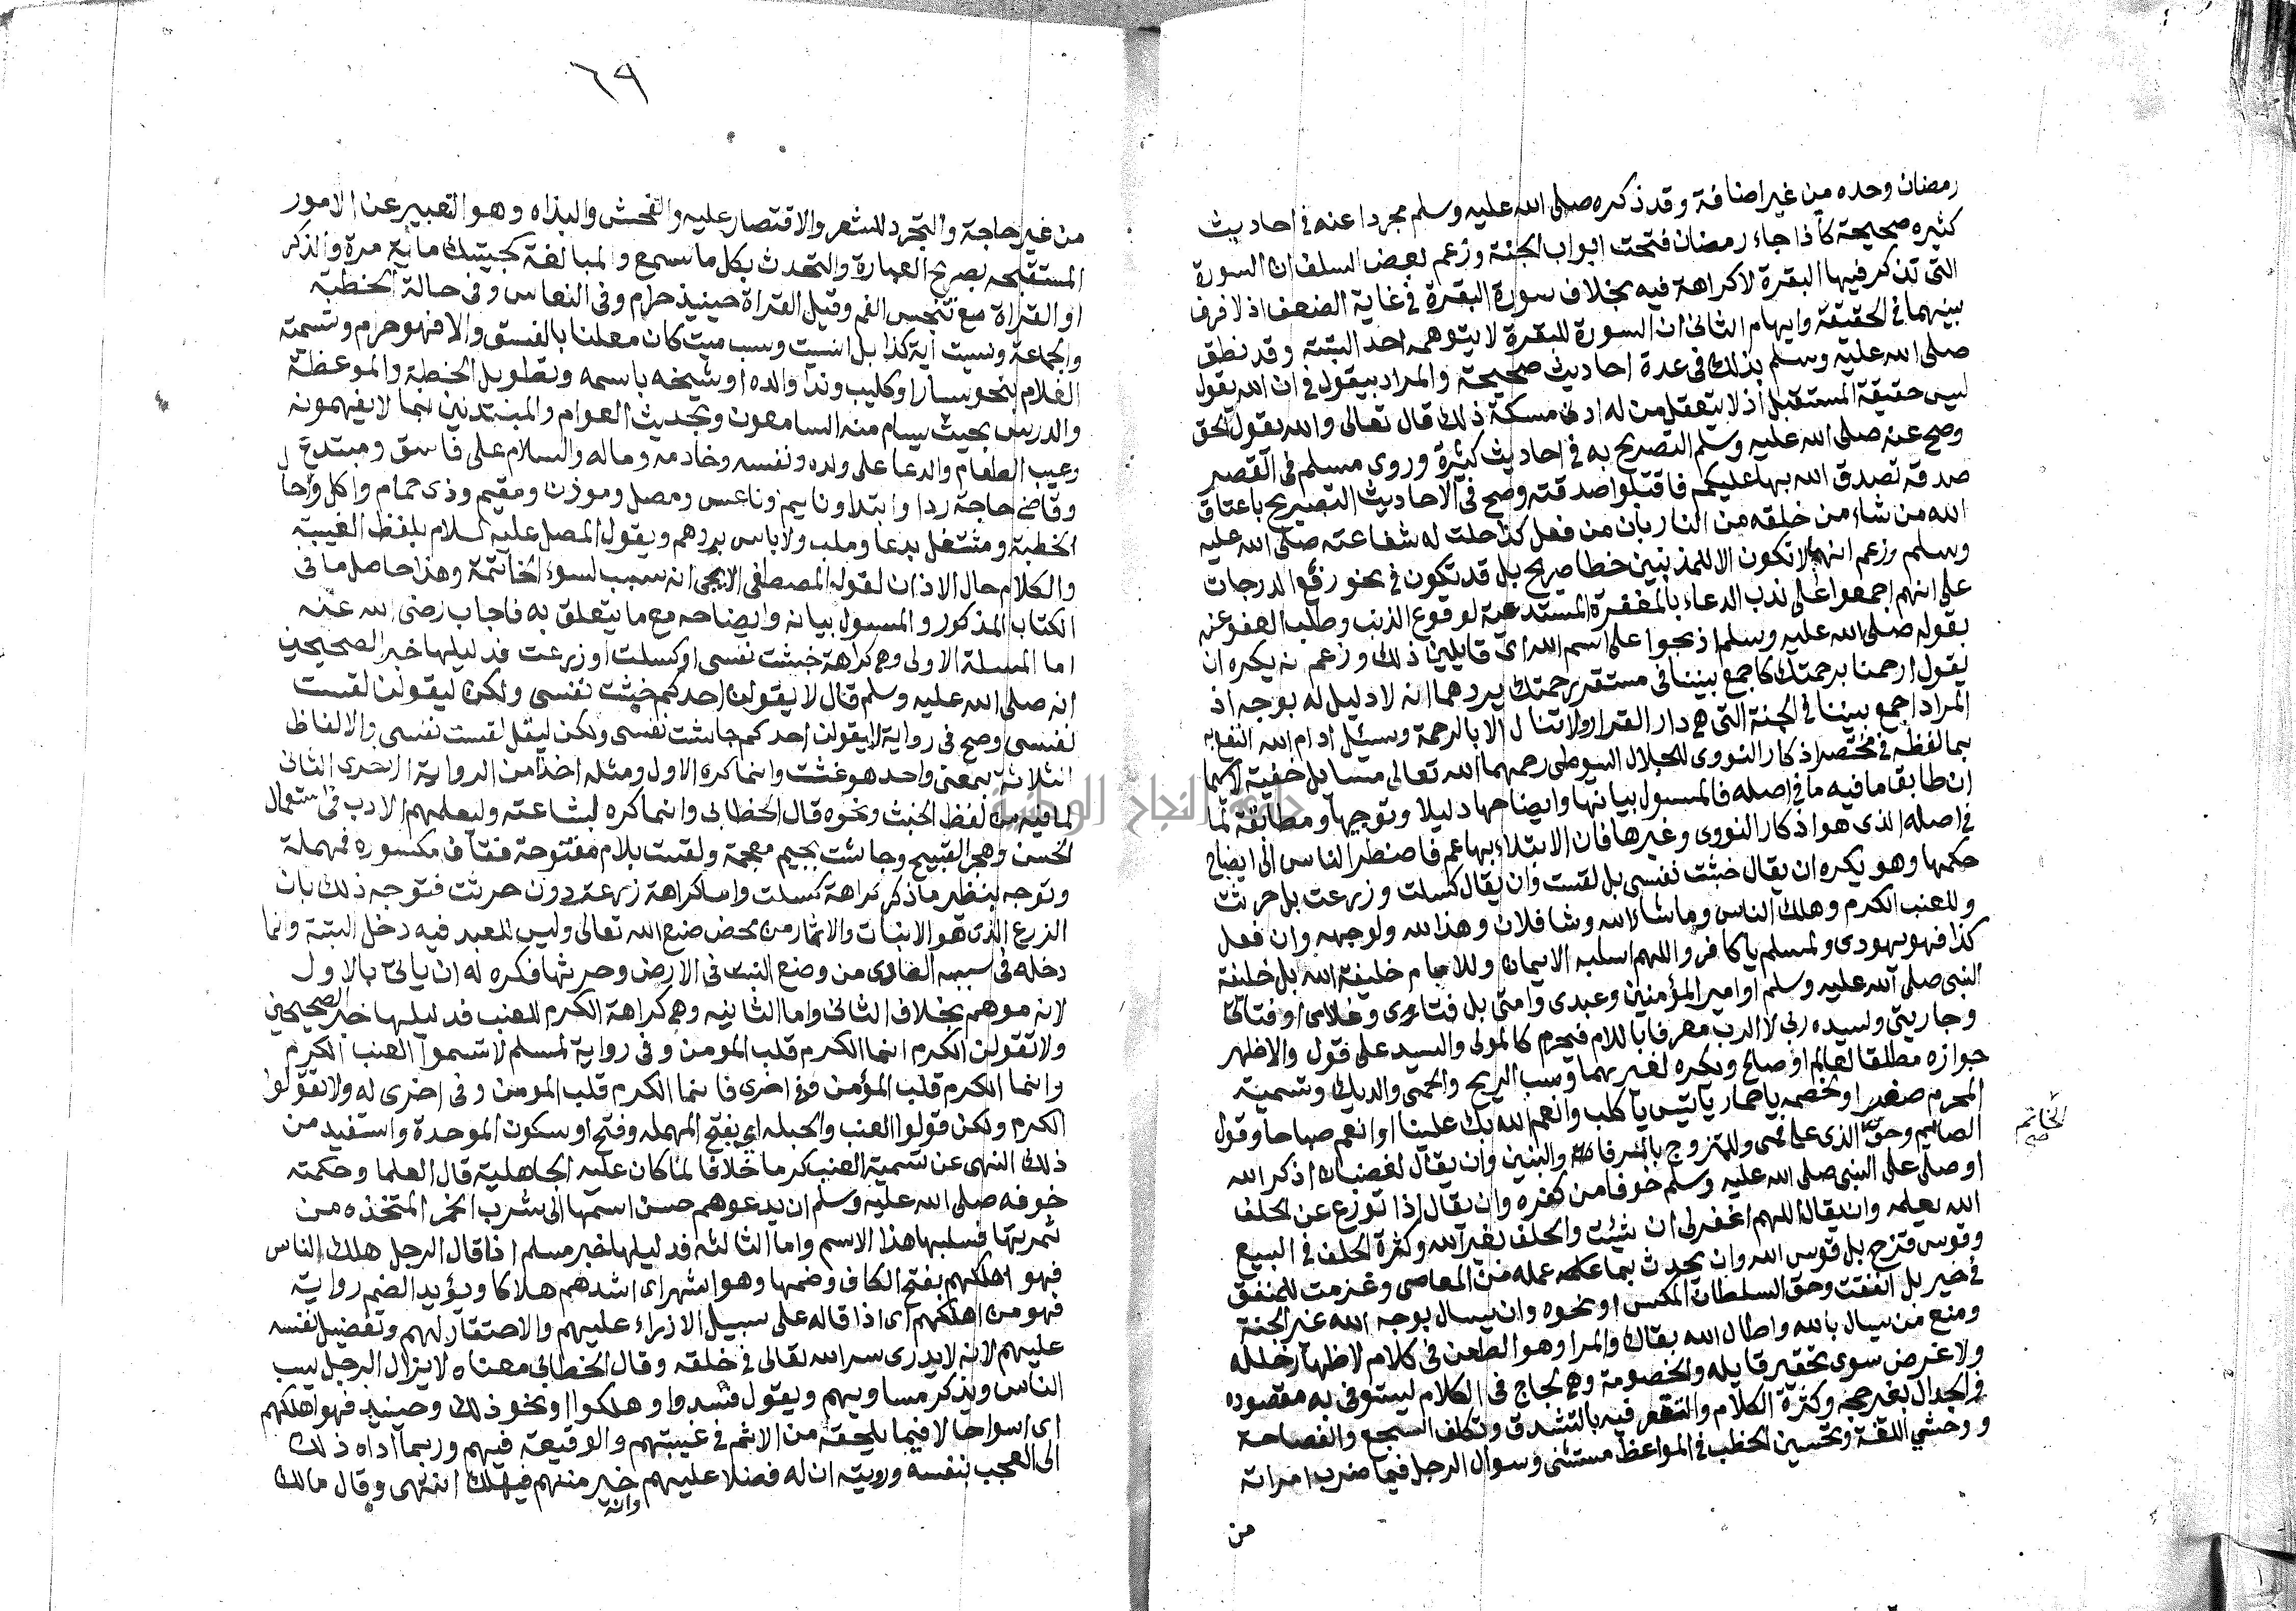 رمضان وحده من غير اضافة وقد ذكره صلى الله عليه وسلم مجردا عنه في احاديث
كثيره صحيحة كاذا جاء رمضان فتحت ابواب الجنة وزعم بعض السلف ان السورة
التي تذكر فيها البقرة لا كراهة فيه بخلاف سورة البقرة في غاية الضعف اذ لا فرق
بينهما في الحقيقة وايهام الثاني ان السورة للبقرة لا يتوهمه احد البتة وقد نطق
صلى الله عليه وسلم بذلك في عدة احاديث صحيحة والمراد بيقول في ان الله يقول
ليس حقيقة المستقبل اذ لا يتعقل من له ادنى مسكة ذلك قال تعالى والله يقول الحق
وصح عنه صلى الله عليه وسلم التصريح به في احاديث كثيرة وروى مسلم في القصر
صدقة تصدق الله بها عليكم فاقبلوا صدقته وصح في الاحاديث التصريح باعتاق
الله من شاء من خلقه من النار بان من فعل كذا حلت له شفاعته صلى الله عليه
وسلم وزعم انها لا تكون الا للمذنبين خطا صريح بل قد تكون في نحو رفع الدرجات
على انهم اجمعوا على ندب الدعاء بالمغفرة المستدعية لوقوع الذنب وطلب العفو عنه
بقوله صلى الله عليه وسلم اذبحوا على اسم الله اي قايلين ذلك وزعم نه يكره ان
يقول ارحمنا برحمتك كاجمع بيننا في مستقر رحمتك يردهما انه لا دليل له بوجه اذ
المراد اجمع بيننا في الجنة التي هي دار القرار ولا تنال الا بالرحمة وسئل ادام الله النفع به
بما لفظه في مختصر اذكار النووي للجلال السيوطي رحمهما الله تعالى مسايل خفية لا كما
ان طابقا ما فيه ما في اصله فالمسول بيانها وايضاحها دليلا وتوجيها ومطابقة لما
في اصله الذي هو اذكار النووي وغيرها فان الابتلاء بها عم فاضطر الناس الى ايضاح
حكمها وهو يكره ان يقال خبثت نفسي بل لقست وان يقال كسلت وزرعت بل حرثت
وللعنب الكرم وهلك الناس وما شاء الله وشا فلان وهذا لله ولوجهه وان فعل
كذا فهو يهودي ولمسلم يا كافر واللهم اسلبه الايمان وللامام خليفة الله بل خليفة
النبي صلى الله عليه وسلم او امير المؤمنين وعبدي وامتي بل فتاي وغلامي او فتاتي
وجاريتي ولسيده ربي لا الرب معرفا باللام فيحرم كالمولى والسيد على قول والاظهر
جوازه مطلقا لعالم او صالح ويكره لغيرهما وسب الريح والحمى والديك وتسمية
المحرم صفرا ولخصمه يا حمار يا تيس يا كلب وانعم الله بك علينا او انعم صباحا وقول
الصايم وحق الخاتم الذي على فمي وللمتزوج بالرفاء والبنين وان يقال لغضبان اذكر الله
او صلي على النبي صلى الله عليه وسلم خوفا من كفره وان يقال اذا تورع عن الحلف
الله يعلمه وان يقال اللهم اغفر لي ان شئت والحلف بغير الله وكثرة الحلف في البيع
وقوس قزح بل قوس الله وان يحدث بما عمله من المعاصي وغرمت للمنفق
في خير بل انفقت وحق السلطان المكس او نحوه وان يسال بوجه الله غير الجنة
ومنع من سال بالله واطال الله بقاك والمرا وهو الطعن في كلام لاظهار خلله
ولا غرض سوى تحقير قايله والخصومة وهي لجاج في الكلام ليستوفي به مقصوده
في الجدال بغير حجه وكثرة الكلام والتقعر فيه بالتشدق وتكلف السجع والفصاحة
ووحشي اللغة وتحسين الخطب في المواعظ مستثنى وسوال الرجل فيما ضرب امراته
من
٦٩
من غير حاجة والتجرد للشعر والاقتصار عليه والفحش والبذاه وهو التعبير عن الامور
المستقبحه بصريح العبارة والتحدث بكل ما سمع والمبالغة كجيتك ماية مرة والذكر
او القراة مع تنجس الفم وقيل القراة حينيذ حرام وفي النعاس وفي حالة الخطبة
والجماعة ونسيت آية كذا بل انسيت وسب ميت كان معلنا بالفسق والا فهو حرام وتسمية
الغلام بنحو يسار او كليب وندا والده او شيخه باسمه وتطويل الخطبة والموعظة
والدرس بحيث يسام منه السامعون وتحديث العوام والمبتدئين بما لا يفهمونه
وعيب الطعام والدعا على ولده ونفسه وخادمه وماله والسلام على فاسق ومبتدع
وقاضي حاجة ردا وابتدا ونايم وناعس ومصل وموذن ومقيم وذي حمام واكل وحال
الخطبة ومشتغل بدعا وملب ولا باس بردهم ويقول المصلي عليه السلام بلفظ الغيبة
والكلام حال الاذان لقوله المصطفى الايجي انه سبب لسوء الخاتمة وهذا حاصل ما في
الكتاب المذكور والمسول بيانه وايضاحه مع ما يتعلق به فاجاب رضي الله عنه
اما المسلة الاولى وهي كراهة خبثت نفسي او كسلت او زرعت فدليلها خبر الصحيحين
انه صلى الله عليه وسلم قال لا يقولن احدكم خبثت نفسي ولكن ليقولن لقست
نفسي وصح في رواية لا يقولن احدكم جاشت نفسي ولكن ليقل لقست نفسي والالفاظ
الثلاثة بمعنى واحد هو غثت وانما كره الاول ومثله اخذا من الرواية الاخرى الثاني
لما فيه من لفظ الخبث ونحوه قال الخطابي وانما كره لبشاعته وليعلمهم الادب في استعمال
الحسن وهجر القبيح وجاشت بجيم معجمة ولقست بلام مفتوحة فقاف مكسوره فمهملة
وتوجه بنظير ما ذكر كراهة كسلت واما كراهة زرعت دون حرثت فتوجه ذلك بان
الزرع الذي هو الانبات والاثمار من محض صنع الله تعالى وليس للعبد فيه دخل البتة وانما
دخله في سببه العادي من وضع البذر في الارض وحرثها فكره له ان ياتي بالاول
لانه موهم بخلاف الثاني واما الثانيه وهي كراهة الكرم للعنب فدليلها خبر الصحيحين
ولا تقولن الكرم انما الكرم قلب المومن وفي رواية لمسلم لا تسموا العنب الكرم
وانما الكرم قلب المؤمن وفي اخرى فانما الكرم قلب المومن وفي اخرى له ولا تقولوا
الكرم ولكن قولوا العنب والحبله اي بفتح المهمله وفتح او سكون الموحدة واستفيد من
ذلك النهي عن تسمية العنب كرما خلافا لما كان عليه الجاهلية قال العلما وحكمته
خوفه صلى الله عليه وسلم ان يدعوهم حسن اسمها الى شرب الخمر المتخذه من
ثمرتها فسلبها هذا الاسم واما الثالثه فدليلها خبر مسلم اذا قال الرجل هلك الناس
فهو اهلكهم بفتح الكاف وضمها وهو اشهر اي اشدهم هلاكا ويؤيد الضم رواية
فهو من اهلكهم اي اذا قاله على سبيل الازراء عليهم والاحتقار لهم وتفضيل نفسه
عليهم لانه لا يدري سر الله تعالى في خلقه وقال الخطابي معناه لا يزال الرجل يسب
الناس ويذكر مساويهم ويقول فسدوا وهلكوا او نحو ذلك وحينيذ فهو اهلكهم
اي اسوا حالا فيما يلحقه من الاثم في غيبتهم والوقيعة فيهم وربما اداه ذلك
الى العجب بنفسه ورويته ان له فضلا عليهم وانه خير منهم فيهلك انتهى وقال مالك
جامعة النجاح الوطنية